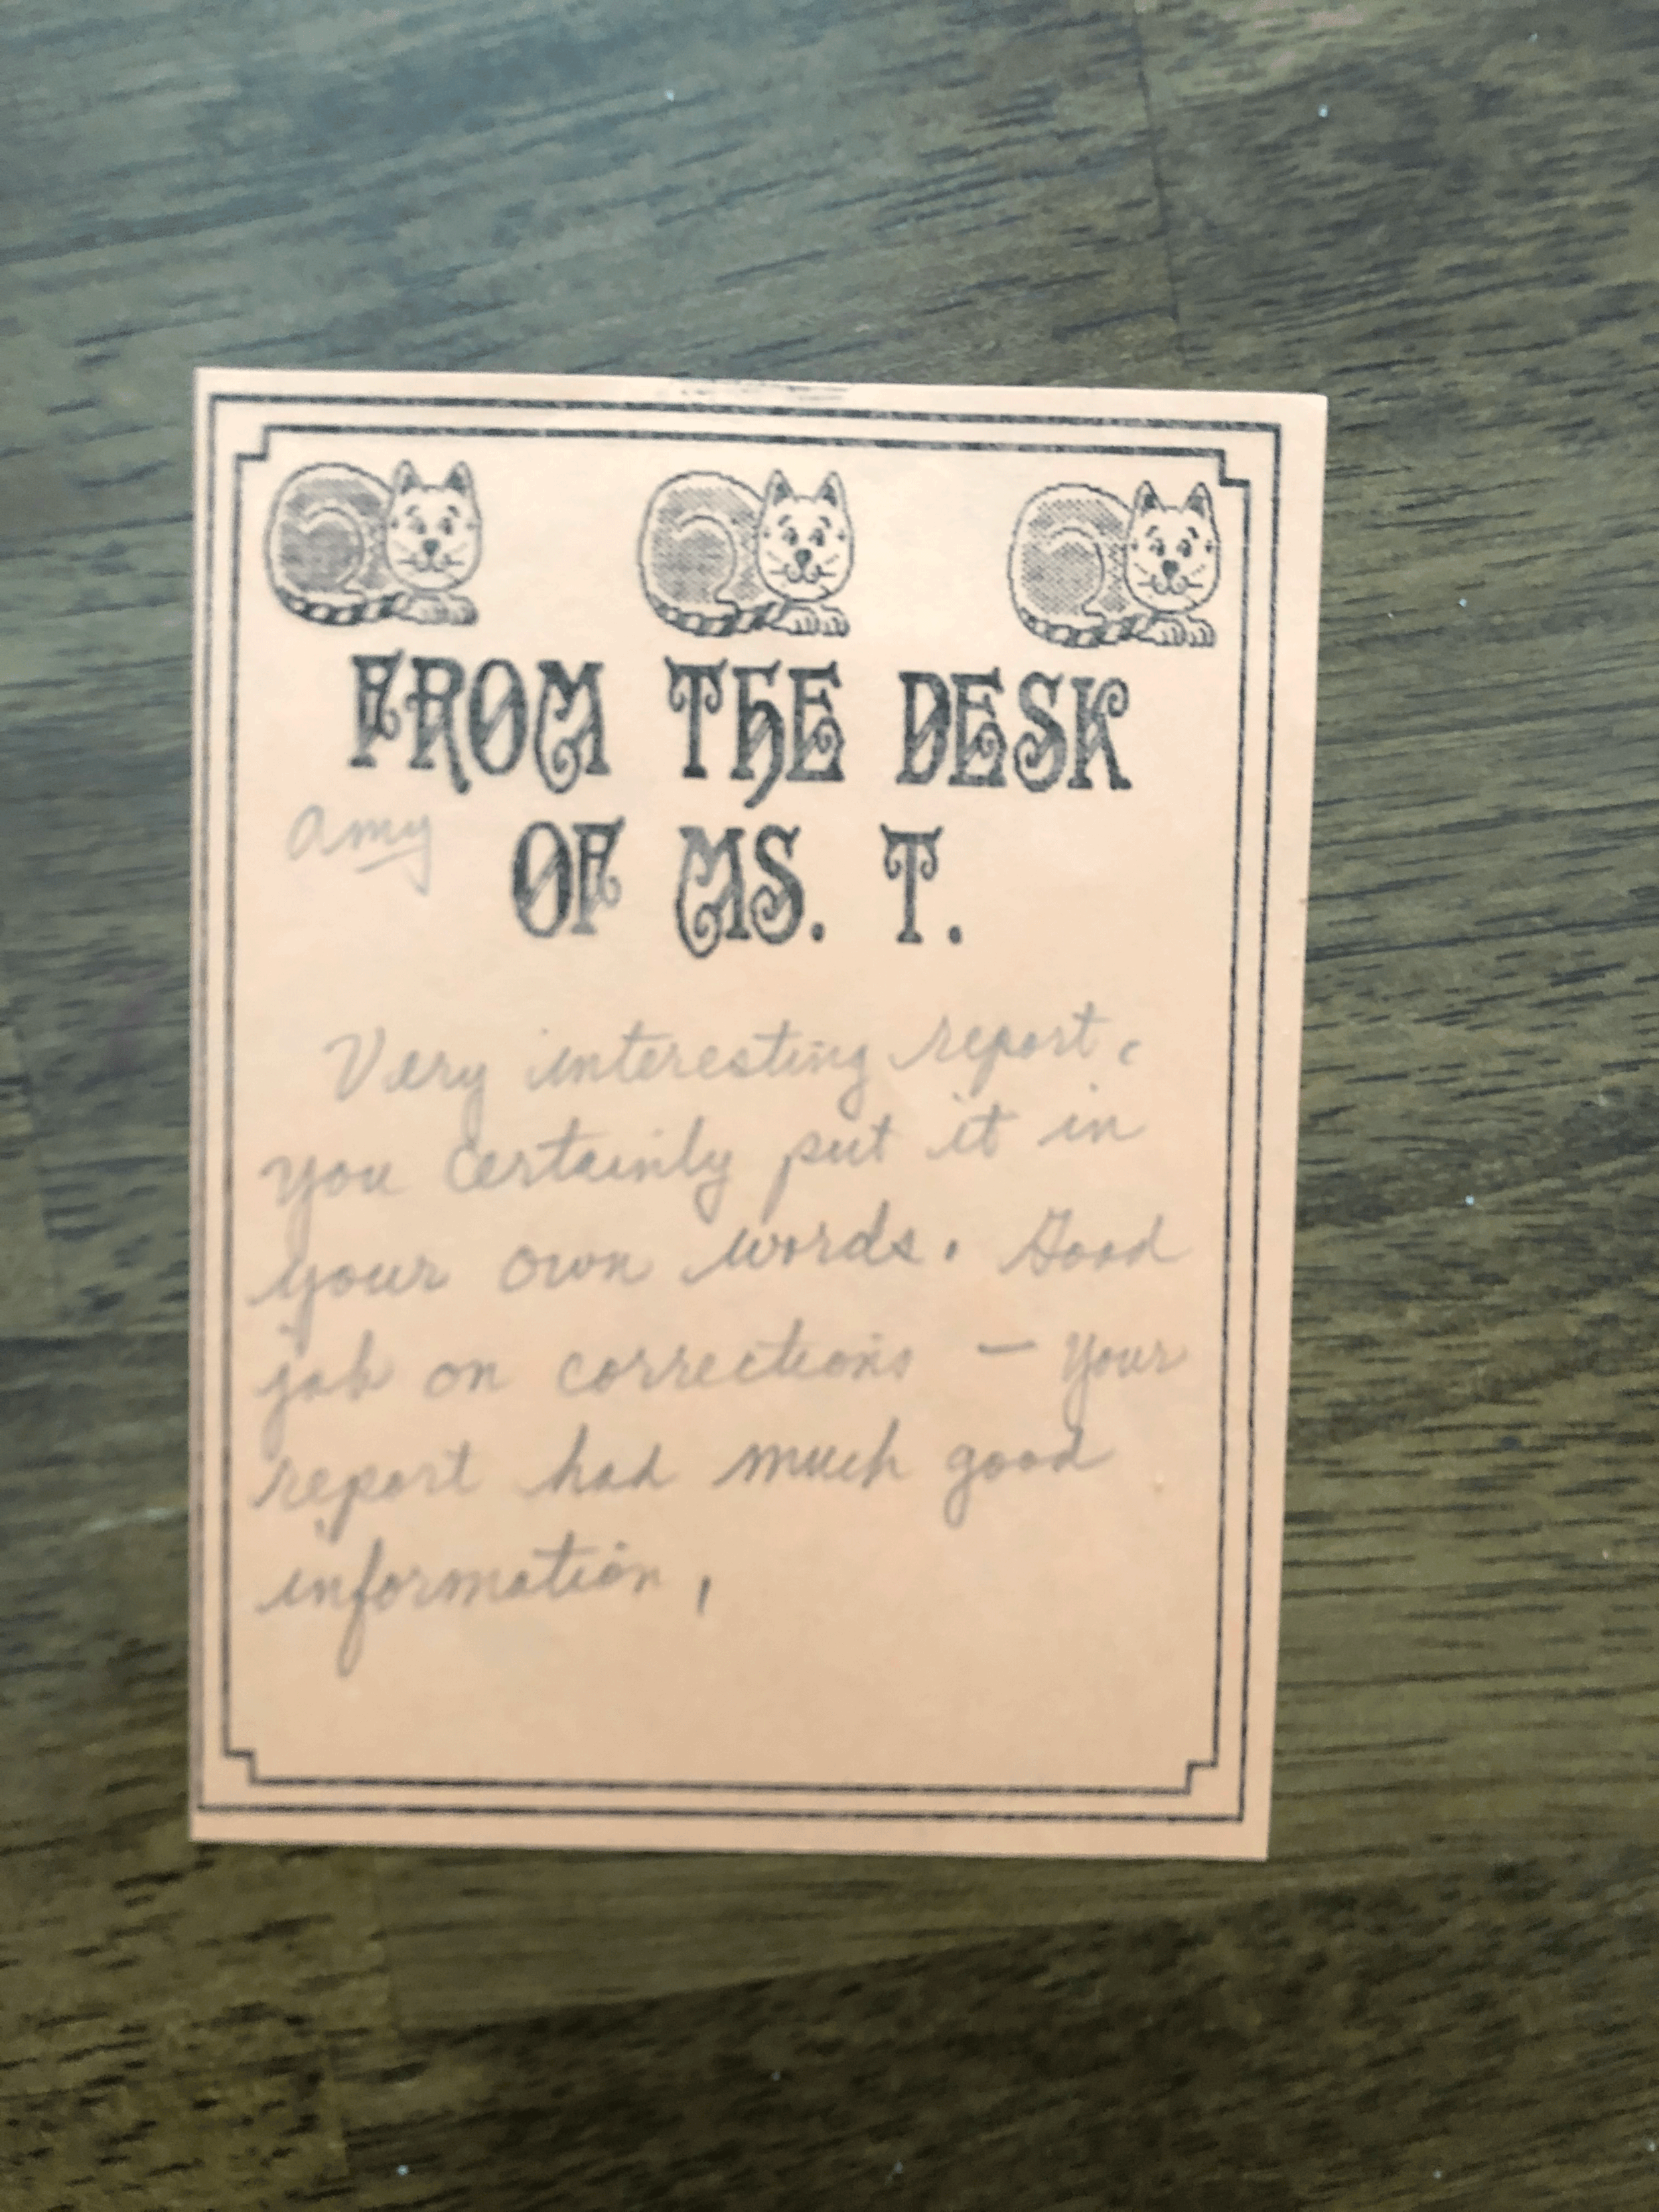 FROM THE DESK
Amy
OF MS. T.
Very interesting report.
You certainly put it in
your own words. Good
job on corrections — Your
report had much good
information.